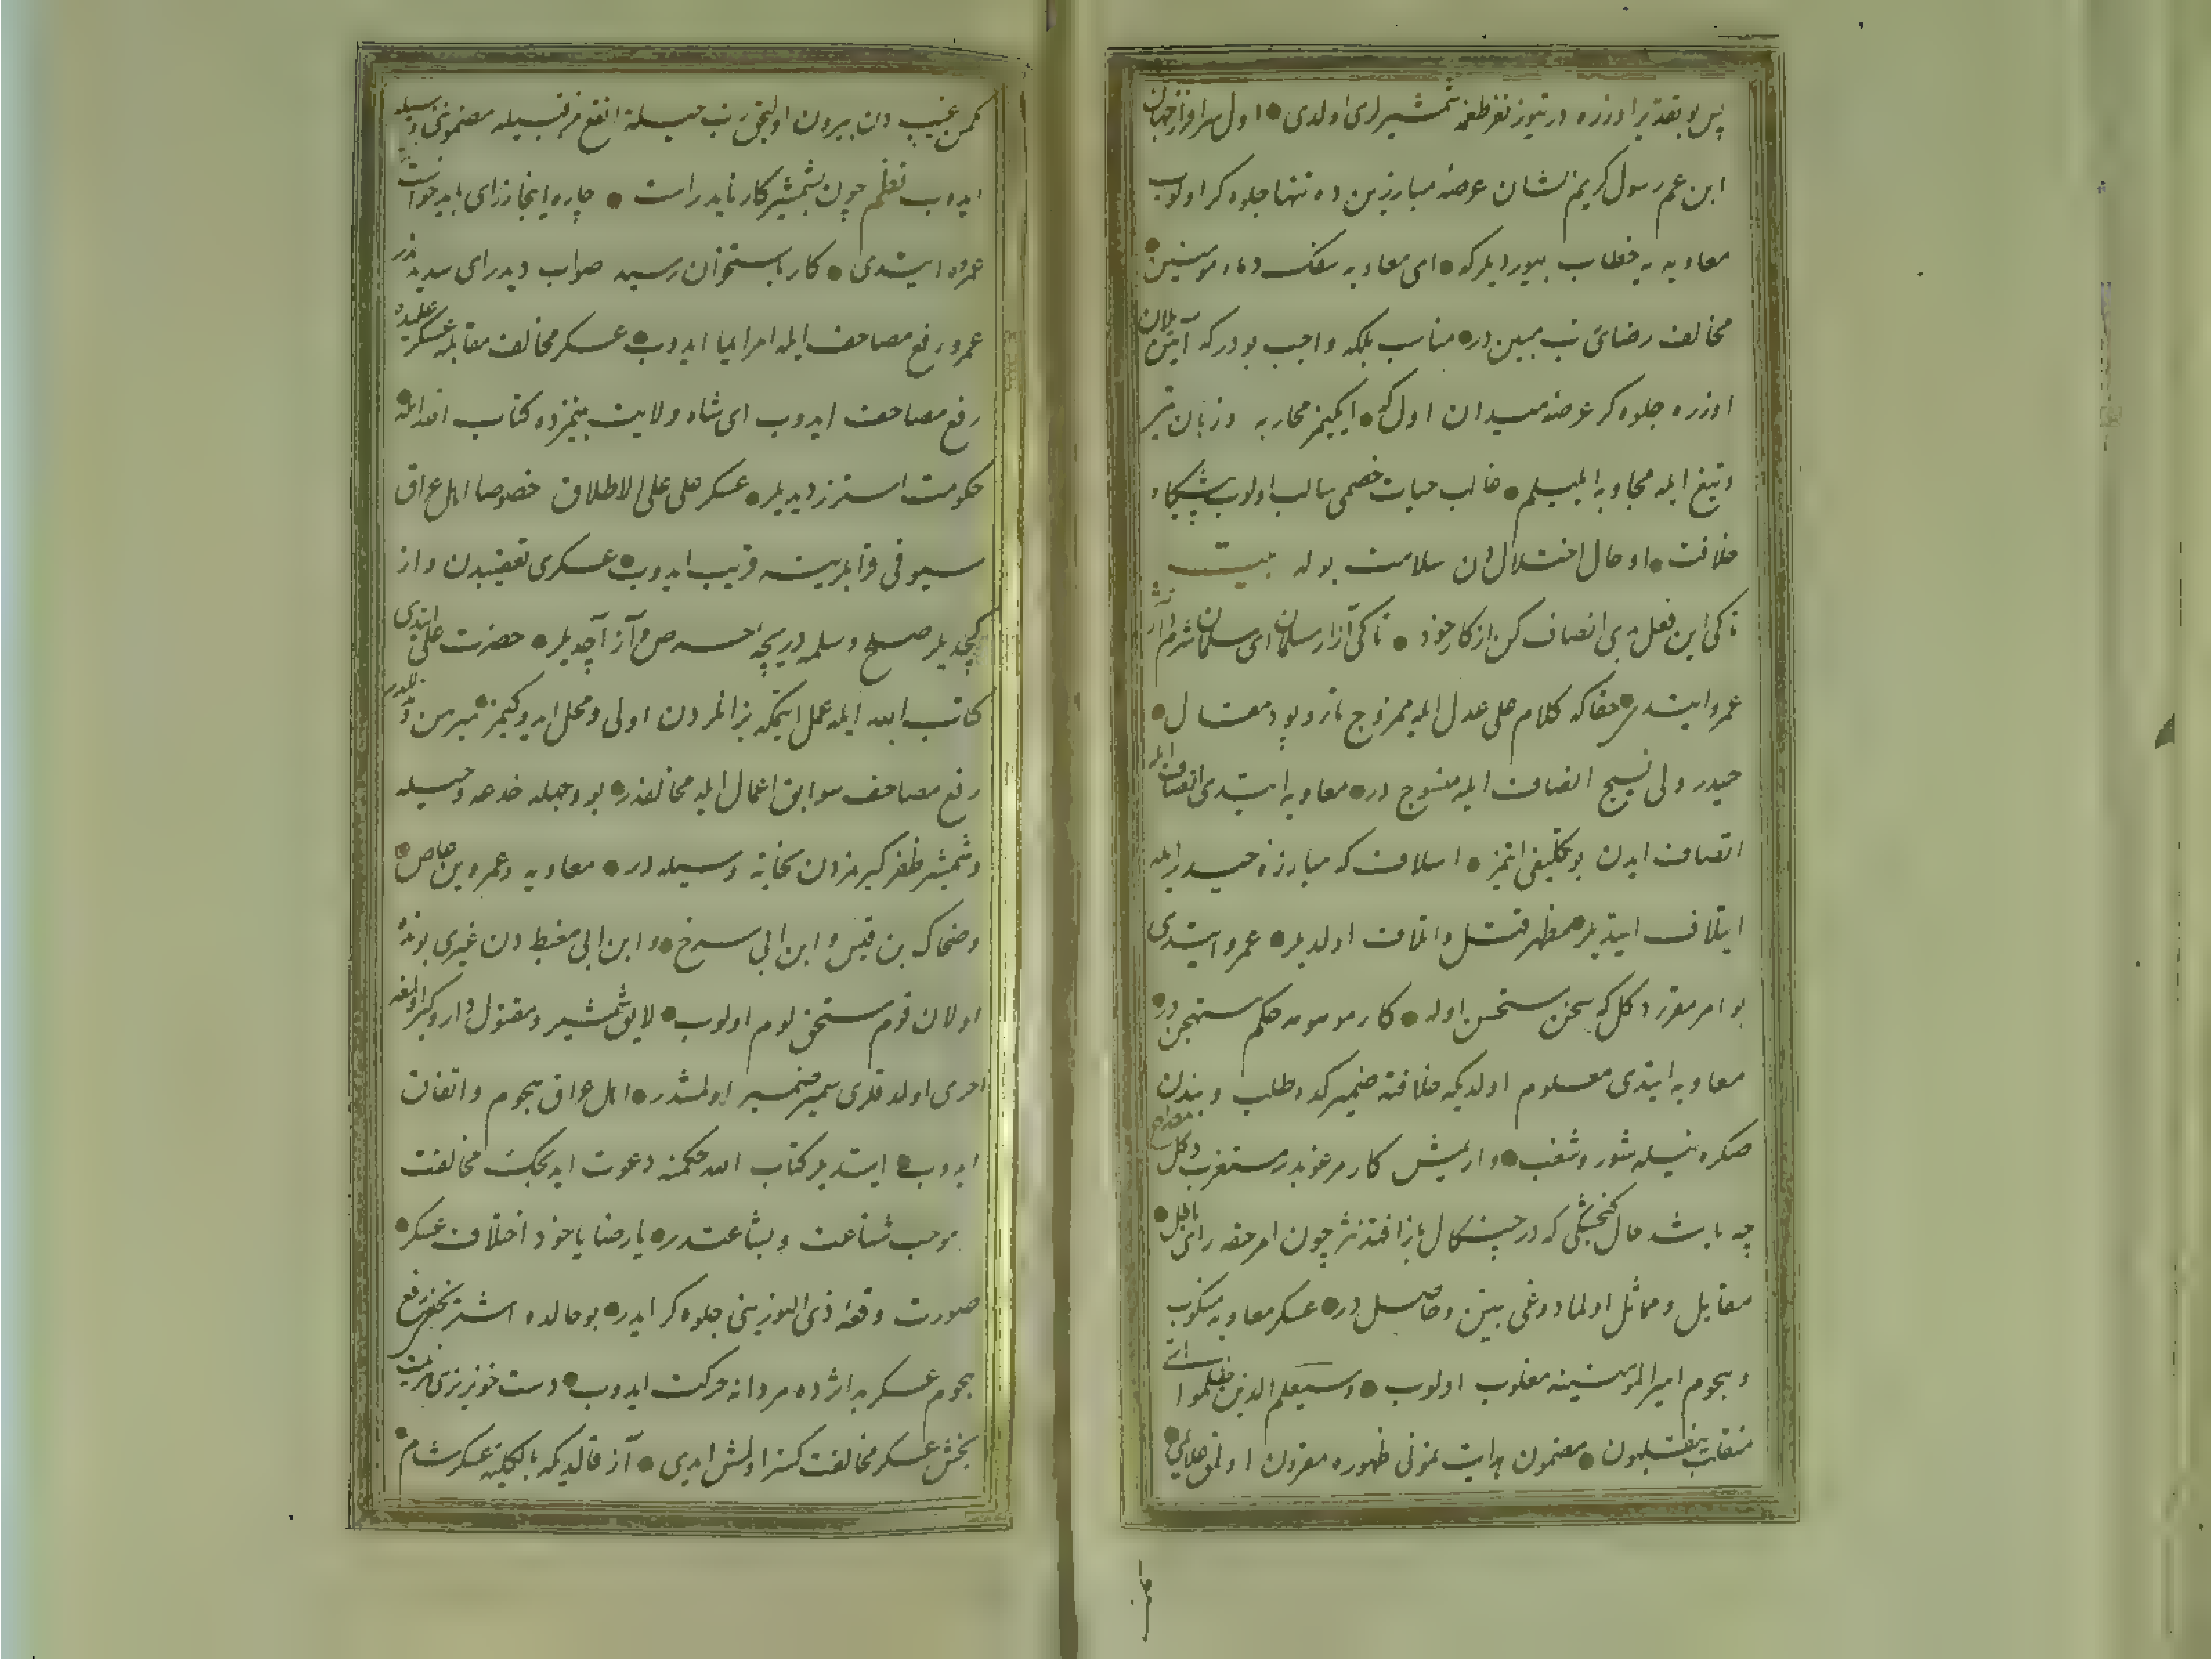 پس بو تقدیر اوزره درتیوز نفر طعمهٔ شمشیرلری اولدی • اول سرافراز جهان
ابن عم رسول کریم الشان عرصهٔ مبارزین ده تنها جلوه کر اولوب
معاویه یه خطاب بیوردیلر که • ای معاویه سفک دماء مومنین •
مخالف رضای رب مبین در • مناسب بلکه واجب بودر که آیین یلان
اوزره جلوه کر عرصهٔ میدان اول که • ایکیمز محاربه و زبان تیر
و تیغ ایله مجاوبه ایلیه لم • غالب حیات خصمی سالب اولوب پیشکاه
خلافت • او حال اختلال دن سلامت بوله بیت
تا کی این فعل بدی انصاف کن از کار خود • تا کی آزار مسلمان ای مسلمان شرم دار
عمرو ایتدی • حقا که کلام علی عدل ایله ممزوج تار و پود مقال •
حیدر ولی نسیج انصاف ایله منسوج در • معاویه ایتدی انصاف ایله
اتصاف ایدن بو تکلیفی ایتمز • اسلاف که مبارزهٔ حیدر ایله
ایتلاف ایتدیلر • مظهر قتل و اتلاف اولدیلر • عمرو ایتدی
بو امر مقرر دکل که سخن مستحسن اوله • کار موهومه حکم مستهجن در •
معاویه ایتدی معلوم اولدیکه خلافته ضمیرکده طلب و بندن
صکره نیله شور و شغب • وار ایمش کار مرغوبدر مستغرب دکل مصراع
چه باشد حال کنجشکی که در چنکال باز افتد نثر چون امر حقه رای باطل •
مقابل و مماثل اولمادوغی بین و حاصل در • عسکر معاویه منکوب
و هجوم امیر المومنینه مغلوب اولوب • وسیعلم الذین ظلموا ای
منقلب ینقلبون • مضمون هدایت نمونی ظهوره مقرون اولمق علایمی •
کمن غیب دن بیرون اولیجق رب حیلة انفع من قبیله مضمونی وسیله
ایدوب نظم چون بشمشیر کار ناید راست • چاره اینجا ز رای باید خواست
عمروه ایتدی • کار باستخوان رسید صواب دید رای سدید ندر
عمرو رفع مصاحف ایله امر ایما ایدوب • عسکر مخالف مقابله عسکر علیده
رفع مصاحف ایدوب ای شاه ولایت بینمزده کتاب الله ایله •
حکومت استرز دیدیلر • عسکر علی علی الاطلاق خصوصا اهل عراق
سیوفی قرابلرینه قریب ایدوب • عسکری تعقیبدن واز
کچدیلر صلح و سلمه دریچهٔ حسه حرص و آز آچدیلر • حضرت علی ایتدی
کتاب الله ایله عمل ایتمکه بز انلردن اولی و محل ایدوکیمز مبرهن در
رفع مصاحف سوابق اعمال ایله مخالفدر • بو وجهله خدعه و حیله
و شمشیر ظفرکیرمزدن نجاته وسیله در • معاویه و عمرو بن عاص •
و ضحاک بن قیس و ابن ابی سرح • و ابن ابی معیط دن غیری بونده
اولان قوم مستحق لوم اولوب • لایق شمشیر و مقتول دار و کیر اولمغه
احری اولدقلری سمیر ضمیر اولمشدر • اهل عراق هجوم و اتفاق
ایدوب • ایتدیلر کتاب الله حکمنه دعوت ایدیجک مخالفت
موجب شناعت و بشاعتدر • یا رضا یاخود اختلاف عسکر •
صورت وقعهٔ ذی النورینی جلوه کر ایدر • بو حالده اشتر نخعی رفع
هجوم عسکر بد اژده مردانه حرکت ایدوب • دست خونریزی هزیمت
بخش عسکر مخالفت کستر اولمش ایدی • آز قالدیکه بالکلیه عسکر شام •